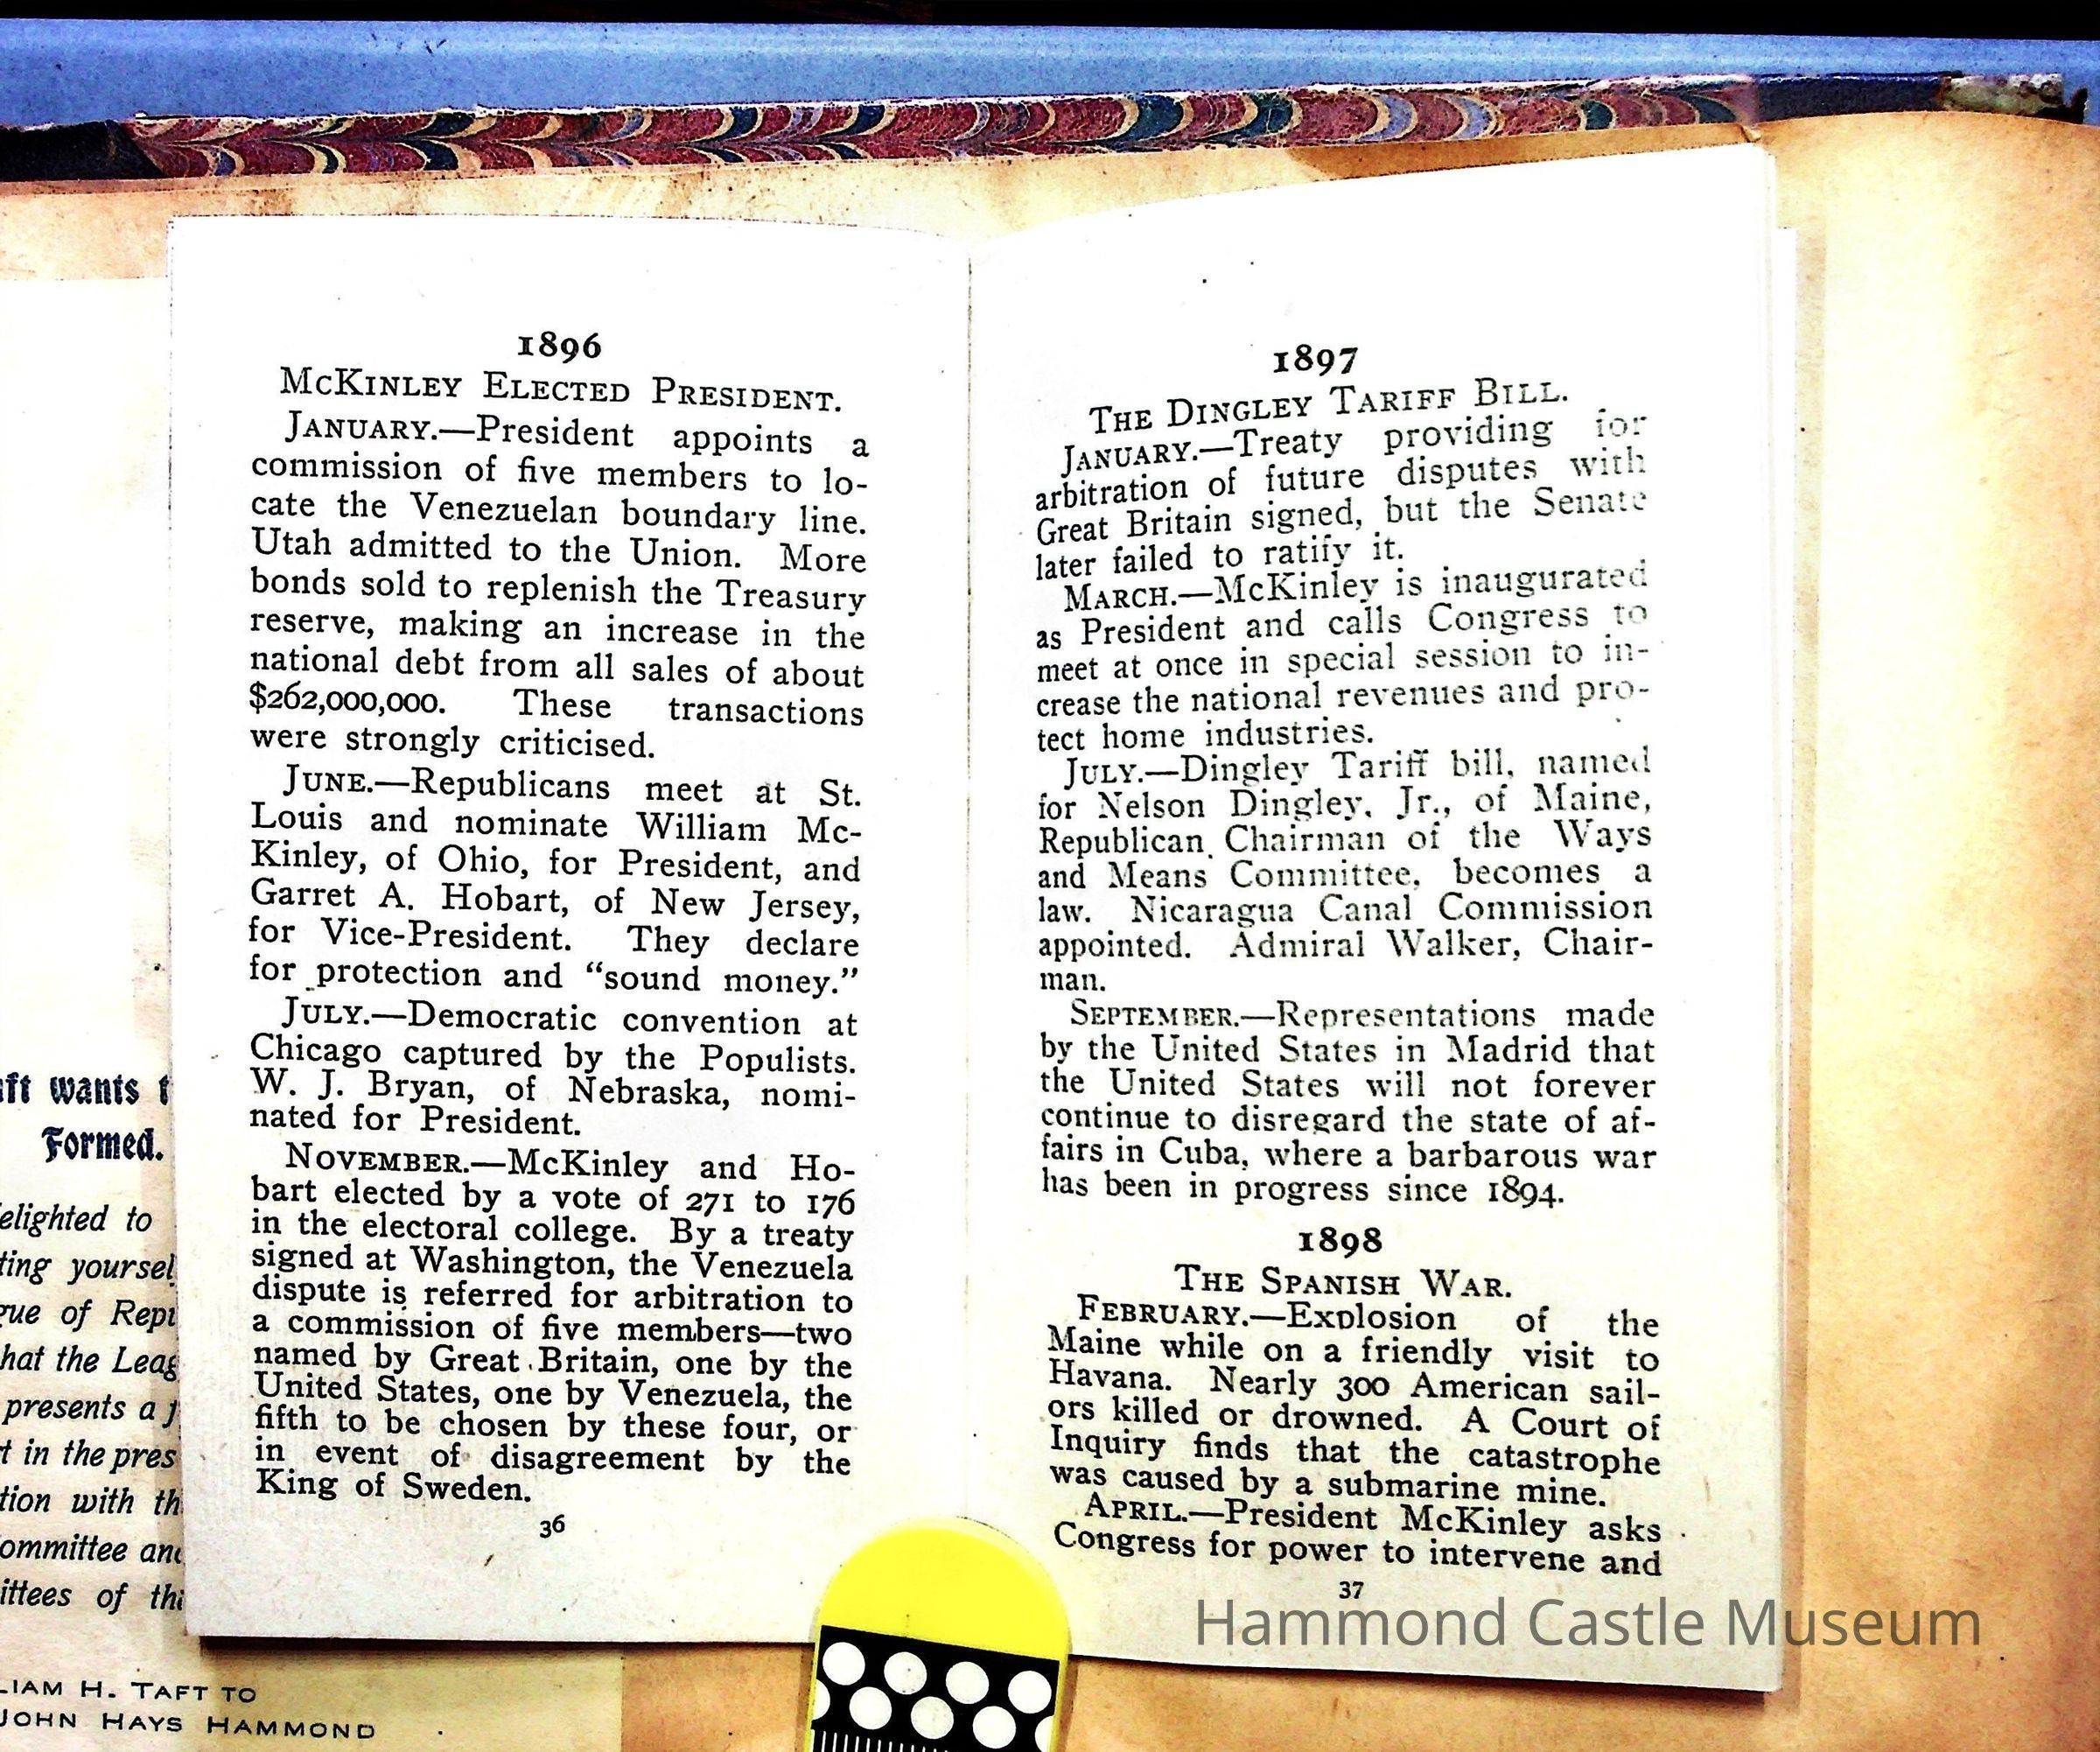 1896
McKinley Elected President.
January.—President appoints a
commission of five members to lo-
cate the Venezuelan boundary line.
Utah admitted to the Union. More
bonds sold to replenish the Treasury
reserve, making an increase in the
national debt from all sales of about
$262,000,000. These transactions
were strongly criticised.
June.—Republicans meet at St.
Louis and nominate William Mc-
Kinley, of Ohio, for President, and
Garret A. Hobart, of New Jersey,
for Vice-President. They declare
for protection and “sound money.”
July.—Democratic convention at
Chicago captured by the Populists.
W. J. Bryan, of Nebraska, nomi-
nated for President.
November.—McKinley and Ho-
bart elected by a vote of 271 to 176
in the electoral college. By a treaty
signed at Washington, the Venezuela
dispute is referred for arbitration to
a commission of five members—two
named by Great Britain, one by the
United States, one by Venezuela, the
fifth to be chosen by these four, or
in event of disagreement by the
King of Sweden.
36
1897
The Dingley Tariff Bill.
January.—Treaty providing for
arbitration of future disputes with
Great Britain signed, but the Senate
later failed to ratify it.
March.—McKinley is inaugurated
as President and calls Congress to
meet at once in special session to in-
crease the national revenues and pro-
tect home industries.
July.—Dingley Tariff bill, named
for Nelson Dingley, Jr., of Maine,
Republican Chairman of the Ways
and Means Committee, becomes a
law. Nicaragua Canal Commission
appointed. Admiral Walker, Chair-
man.
September.—Representations made
by the United States in Madrid that
the United States will not forever
continue to disregard the state of af-
fairs in Cuba, where a barbarous war
has been in progress since 1894.
1898
The Spanish War.
February.—Explosion of the
Maine while on a friendly visit to
Havana. Nearly 300 American sail-
ors killed or drowned. A Court of
Inquiry finds that the catastrophe
was caused by a submarine mine.
April.—President McKinley asks
Congress for power to intervene and
37
wants
Formed.
elighted to
ting yoursel
of Rep
hat the Leag
presents a
in the pres
tion with th
ommittee an
ittees of th
LIAM H. TAFT TO
JOHN HAYS HAMMOND
Hammond Castle Museum